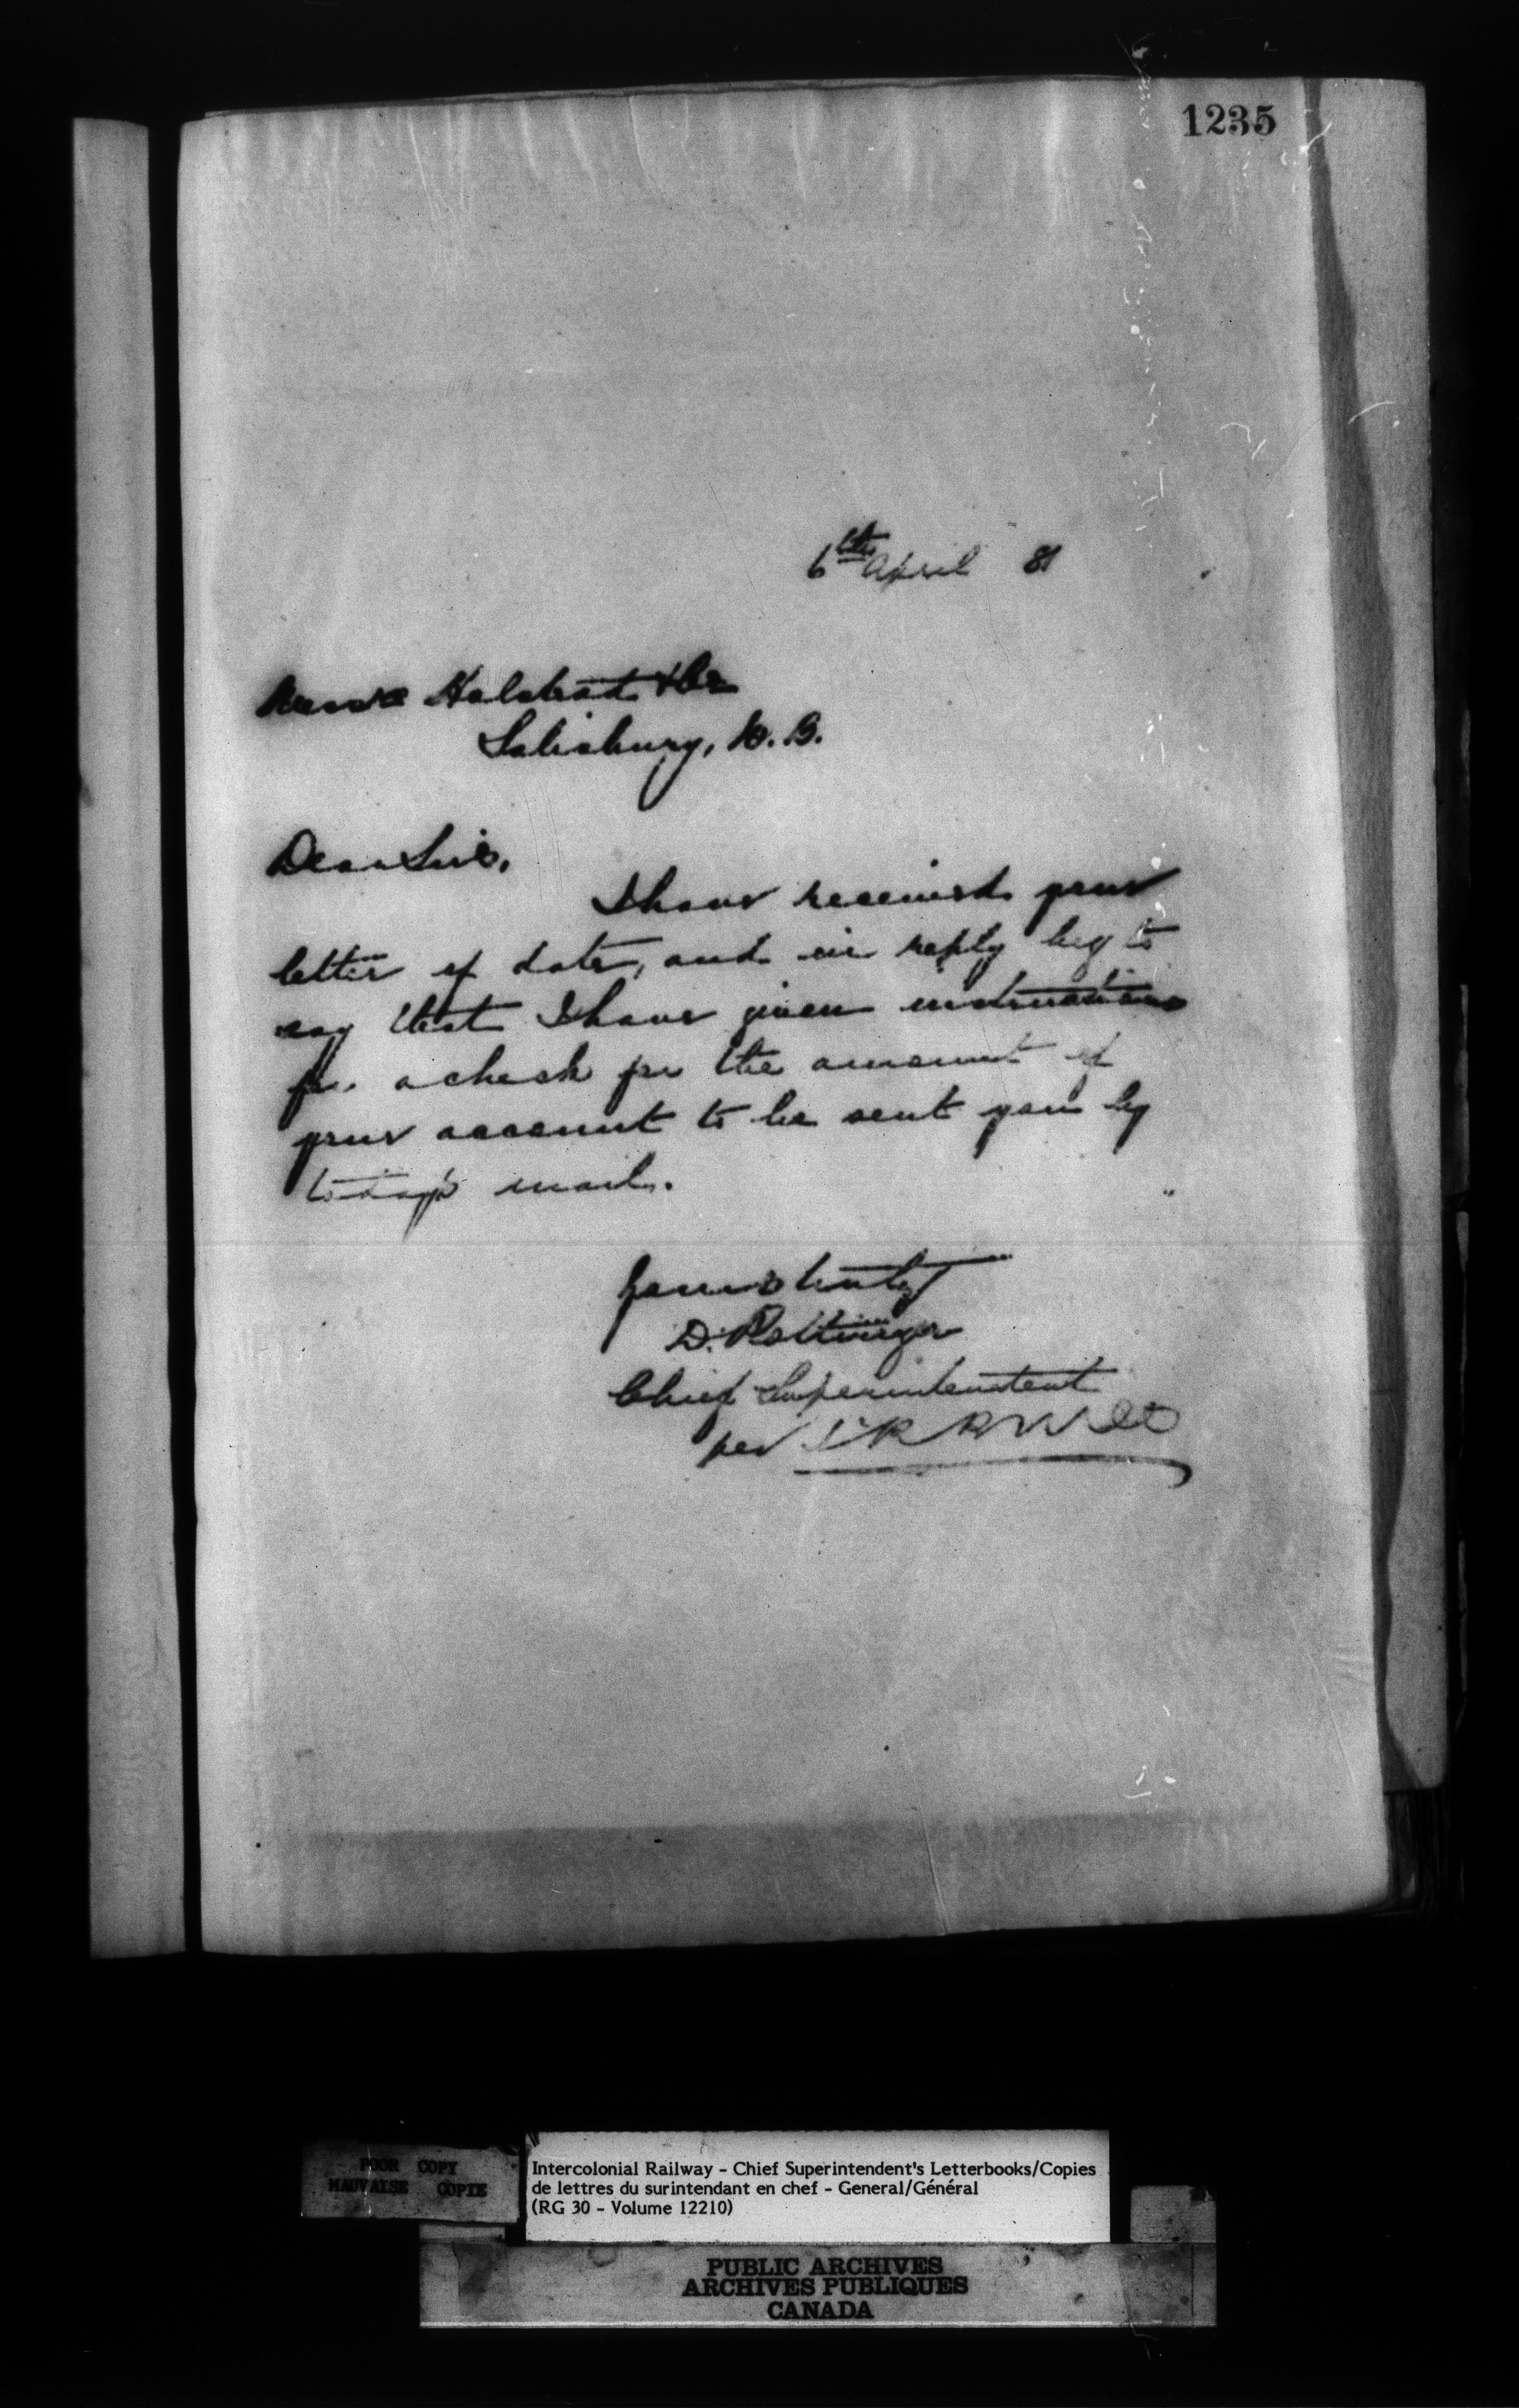 1235
6th April 81
Messrs Halstead & Co
Salisbury, N.B.
Dear Sirs,
I have received your
letter of date, and in reply beg to
say that I have given instructions
for a check for the amount of
your account to be sent you by
to-day's mail.
Yours truly
D. Pottinger
Chief Superintendent
per
POOR COPY
MAUVAISE COPIE
Intercolonial Railway - Chief Superintendent's Letterbooks/Copies
de lettres du surintendant en chef - General/Général
(RG 30 - Volume 12210)
PUBLIC ARCHIVES
ARCHIVES PUBLIQUES
CANADA